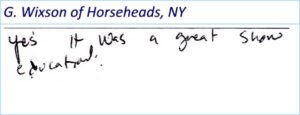 G. Wixson of Horseheads, NY
yes it was a great show
educational.